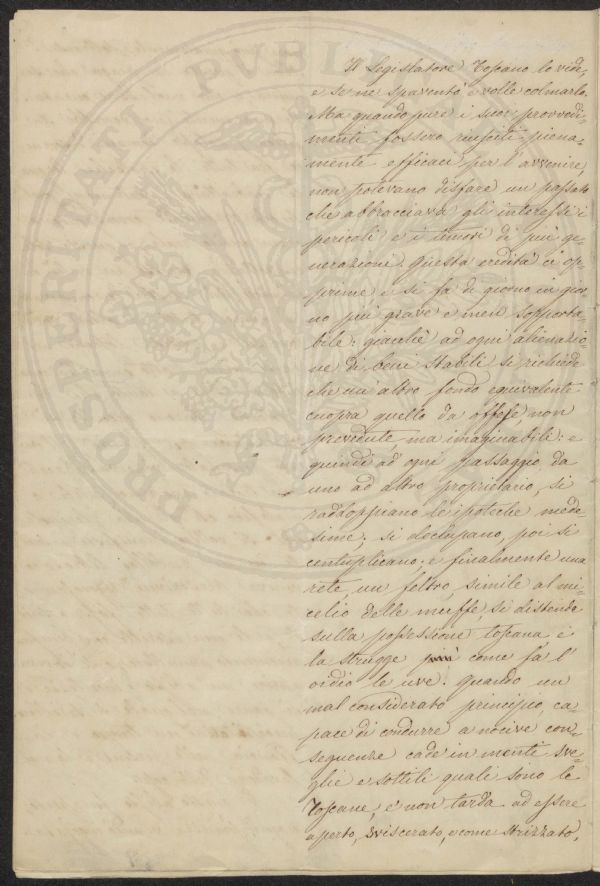 Il Legislatore Toscano lo vide,
e se ne spaventò e volle colmarlo.
Ma quando pure i suoi provvedi-
menti fossero riusciti piena-
mente efficaci per l'avvenire,
non potevano disfare un passato
che abbracciava gli interessi i
pericoli e i timori di più ge-
nerazioni. Questa eredità ci op-
prime, e si fa di giorno in gior-
no più grave e men sopporta-
bile: giacchè ad ogni alienazio-
ne di beni stabili si richiede
che un altro fondo equivalente
cuopra quello da offese, non
prevedute, ma imaginabili: e
quindi ad ogni passaggio da
uno ad altro proprietario, si
raddoppiano le ipoteche mede-
sime; si decupano, poi si
centuplicano: e finalmente una
rete, un feltro, simile al mi-
celio delle muffe, si distende
sulla possessione toscana, e
la strugge come fa l'
oidio le uve. Quando un
mal considerato principio, ca
pace di condurre a nocive con-
seguenze cade in menti sve-
glie e sottili quali sono le
Toscane, e' non tarda ad essere
aperto, sviscerato, e come strizzato,
PROSPERITATI PVBLI